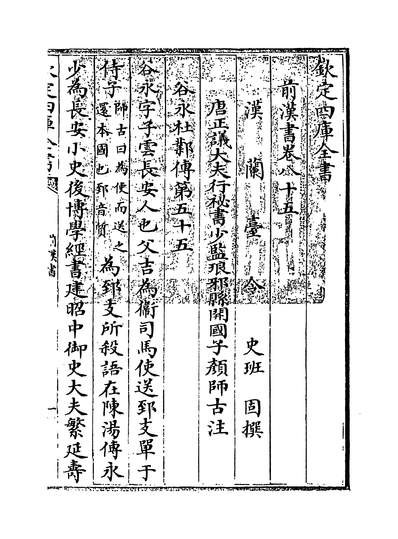 欽定四庫全書
前漢書卷八十五
漢蘭臺令史班固撰
唐正議大夫行秘書少監琅邪縣開國子顏師古注
谷永杜鄴傳第五十五
谷永字子雲長安人也父吉為衛司馬使送郅支單于
侍子師古曰為使而送之還本國也郅音質為郅支所殺語在陳湯傳永
少為長安小史後博學經書建昭中御史大夫繁延壽
欽定四庫全書
前漢書
一